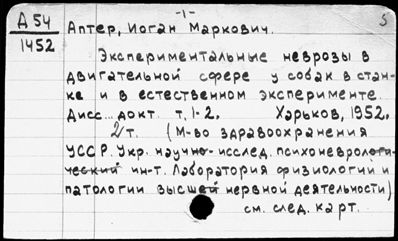 -1-
5
Д 54
1452
Аптер, Иоган Маркович.
Экспериментальные неврозы в
двигательной сфере у собак в стан-
ке и в естественном эксперименте.
Дисс... докт. т. 1-2. Харьков, 1952.
2 т. (М-во здравоохранения
УССР. Укр. научно-исслед. психоневрологи-
ческий ин-т. Лаборатория физиологии и
патологии высшей нервной деятельности)
см. след. карт.